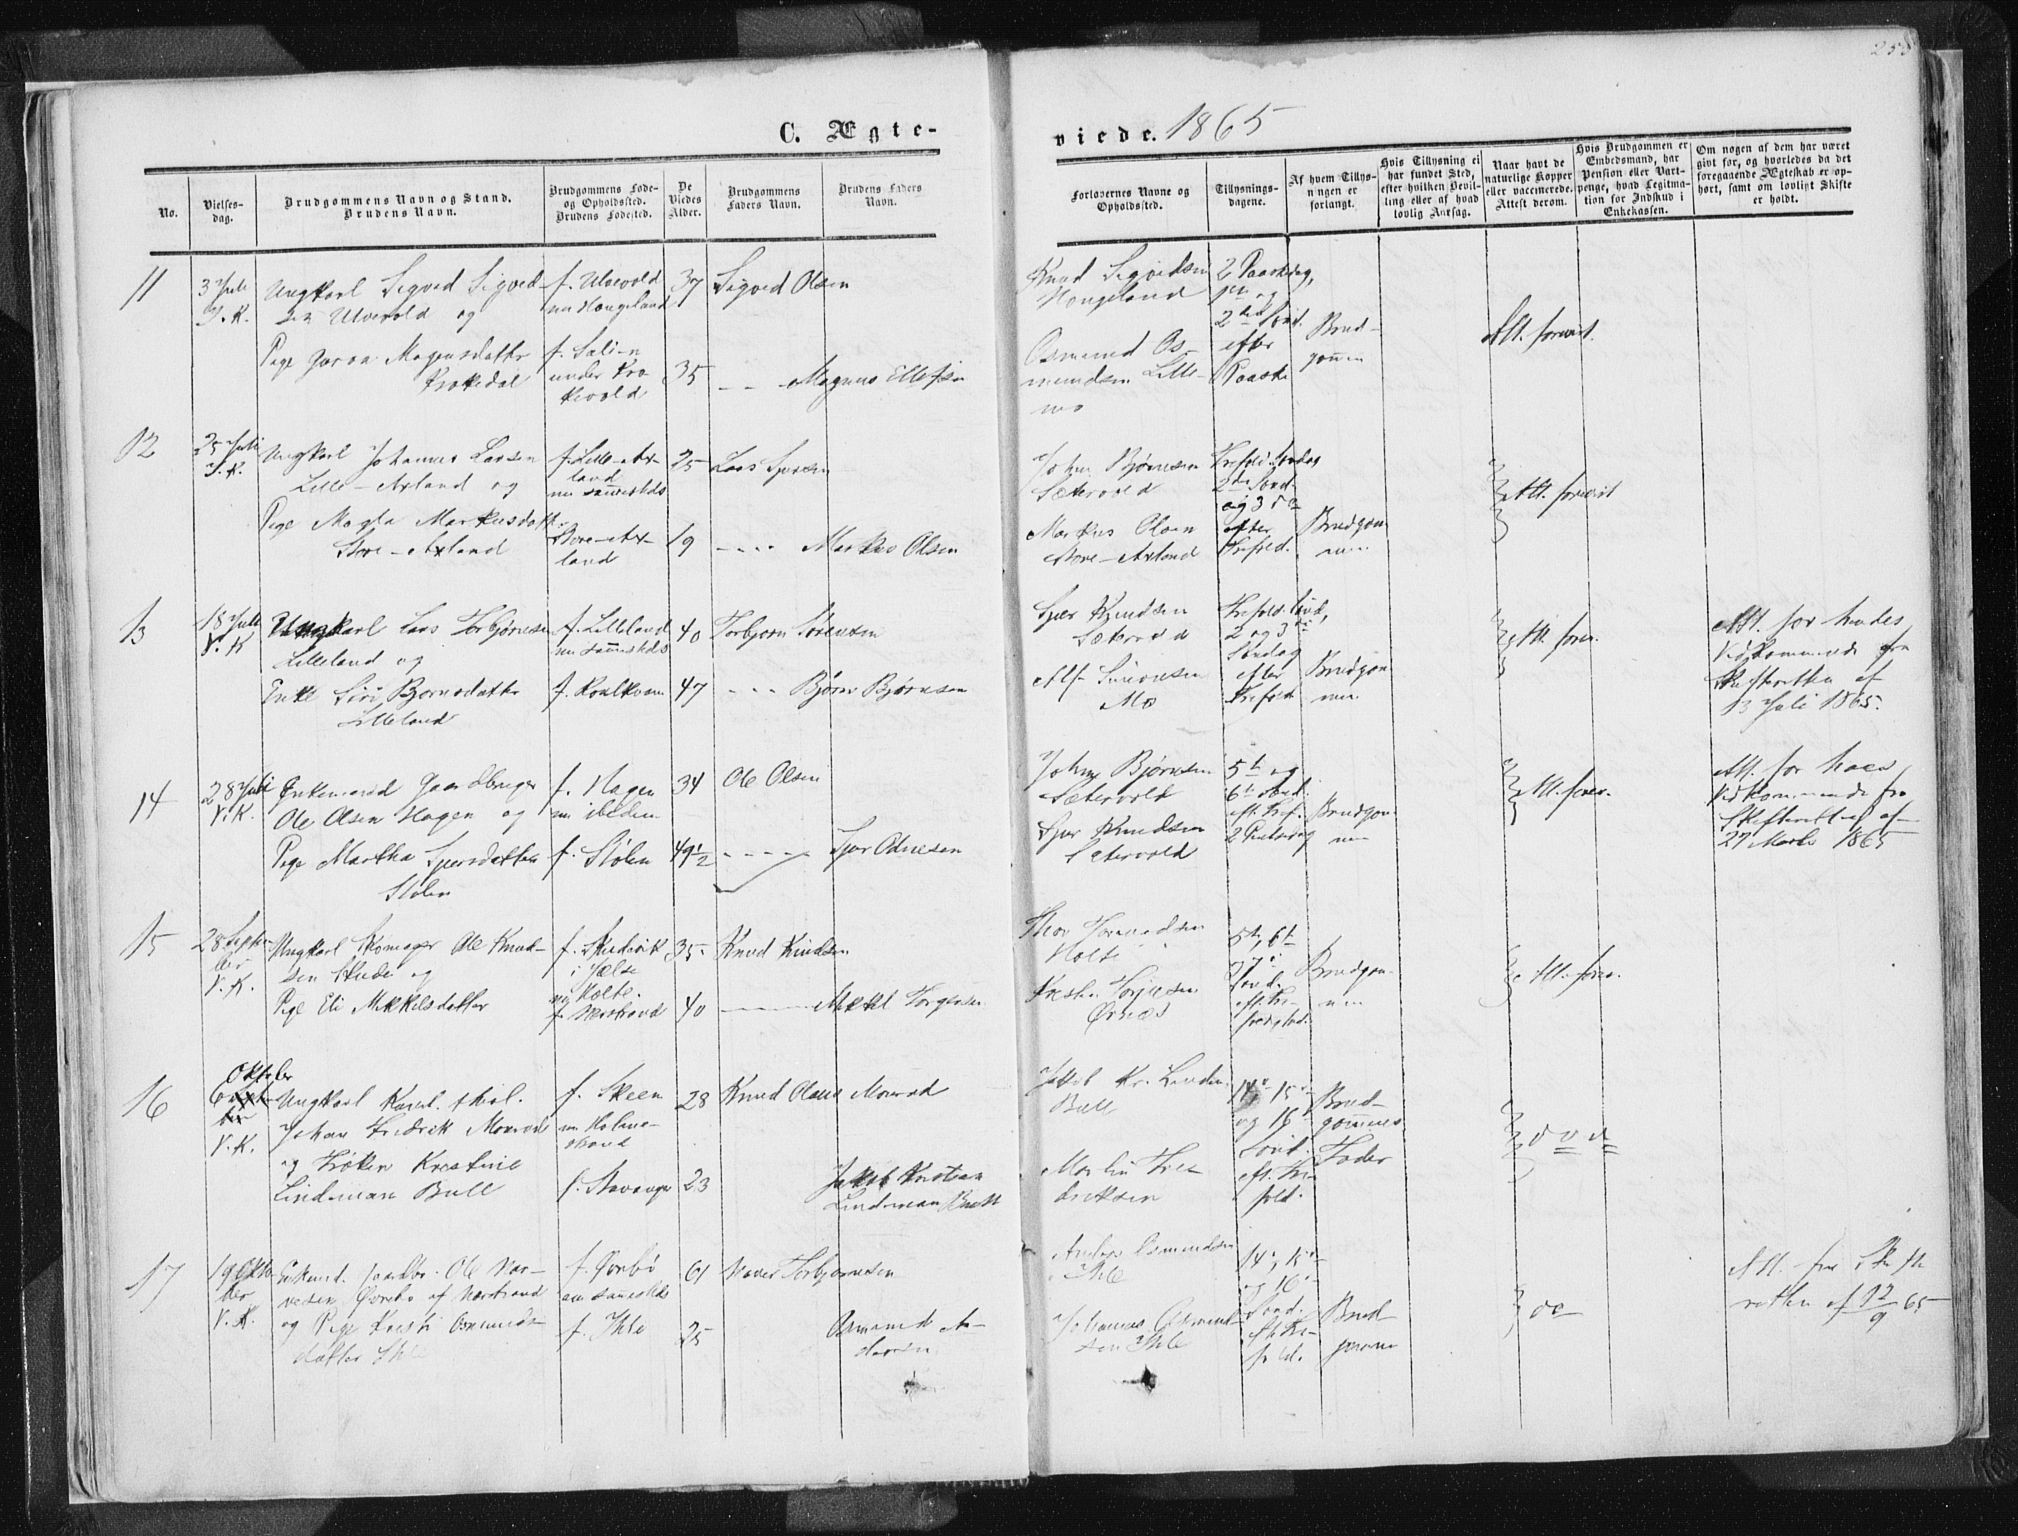 258
C. Ægte-
viede. 1865
No.
Vielses-
dag.
Brudgommens Navn og Stand.
Brudens Navn.
Brudgommens Føde-
og Opholdssted.
Brudens Fødested.
De
Viedes
Alder.
Brudgommens
Faders Navn.
Brudens Faders
Navn.
Forlovernes Navne og
Opholdssted.
Tillysnings-
dagene.
Af hvem Tillys-
ningen er
forlangt.
Hvis Tillysning ei
har fundet Sted,
efter hvilken Bevil-
ling eller af hvad
lovlig Aarsag.
Naar havt de
naturlige Kopper
eller vaccinerede.
Attest derom.
Hvis Brudgommen er
Embedsmand, har
Pension eller Vart-
penge, hvad Legitima-
tion for Indskud i
Enkekassen.
Om nogen af dem har været
givt før, og hvorledes da det
foregaaende Ægteskab er op-
hørt, samt om lovligt Skifte
er holdt.
11
3 Juli
Ungkarl Sigved Sigved-
sen Ulvevold og
Pige Magnsdatter
Krokedal
f. Ulvevold
nu Hougeland
f. Salien
under Kro
kevold
37
35
Sigved Olsen
Magnus Ellefsen
Knud Sigvedsen
Hougeland
Osmund Os-
mundsen Lille-
mo
2 Paaskdag,
1ste og
2den Sønd.
efter
Paaske
Brud-
gommen
Att. forevist.
12
25 Juli
Ungkarl Johannes Larsen
Lille-Axland og
Pige Magla Markusdatt.
Store-Axland
f. Lille-Ax-
land
nu sammesteds
Store-Ax-
land
25
19
Lars
Markus Olsen
Johns Bjørnsen
Sætervold
Markus Olsen
Store-Axland
Trefold. Søndag
2den Sønd.
og 3die
efter
Trefold.
Brudgom-
men
Att. forevist
13
18 Juli
V. K
Ungkarl Lars Torbjørnsen
Lilleland og
Enke Siri Bjørnsdatter
Lilleland
f. Lilleland
nu sammesteds
f.
40
47
Torbjørn Sørensen
Bjørn Bjørnsen
Sjur Knudsen
Sætervold
Alf Simonsen
Mo
Trefold. Sønd,
2 og 3die
Søndag
efter
Trefold
Brudgom-
men
Att. forev.
Att. for hendes
Vedkommende fra
Skifteretten af
13 Juli 1865.
14
28 Juli
V. K.
Enkemand Gaardbruger
Ole Olsen Hagen og
Pige Martha Sjursdatter
Stølen
f. Hagen
nu ibidem
f. Stølen
34
49½
Ole Olsen
Sjur Odnesen
Johns Bjørnsen
Sætervold
Sjur Knudsen
Sætervold
5te og
6te Sønd.
eft. Tref.
Brudgom-
men
Att. forev.
Att. for hans
Vedkommende fra
Skifteretten af
27 Marts 1865
15
28 Septem-
ber
V. K.
Ungkarl Skomager Ole Knud-
sen og
Pige Eli Mikkelsdatter
i Jælse
nu Holte
f. Nærstrand
35
40
Knud Knudsen
Mikkel Torgersen
Thor Tormodsen
Holte
Ørnes
5te, 6te
og 7de
Sønd.
eft. Tre-
Brudgom-
men
Att. forev.
16
Oktober
6
V. K.
Ungkarl
Johan Fredrik Monrad
og Frøken Kristine
Lindeman Bull
f. Skeen
nu Holme-
strand
f. Stavanger
28
23
Knud Olaus Monrad
Jakob Kristian
Lindeman Bull
Jakob Kr. Linden.
Bull
Martin Fre-
driksen
14de, 15de
og 16de
Sønd.
eft. Tre-
fold.
Brud-
gommens
Fader
17
19 Okto-
ber
V. K.
Enkemd. Gaardbr. Ole Nar-
vesen Øvrebø af Nærstrand
og Pige Kristi Osmunds-
datter Ihle
f. Øvrebø
nu sammesteds
f. Ihle
61
25
Naver Torbjørnsen
Osmund A-
Anders Osmundsen
Ihle
Johannes Osmund-
sen Ihle
14de, 15de
og 16de
Sønd.
eft. Tre-
fold.
Brud-
gommen
Att. fra Skifte
retten af 12/9 65